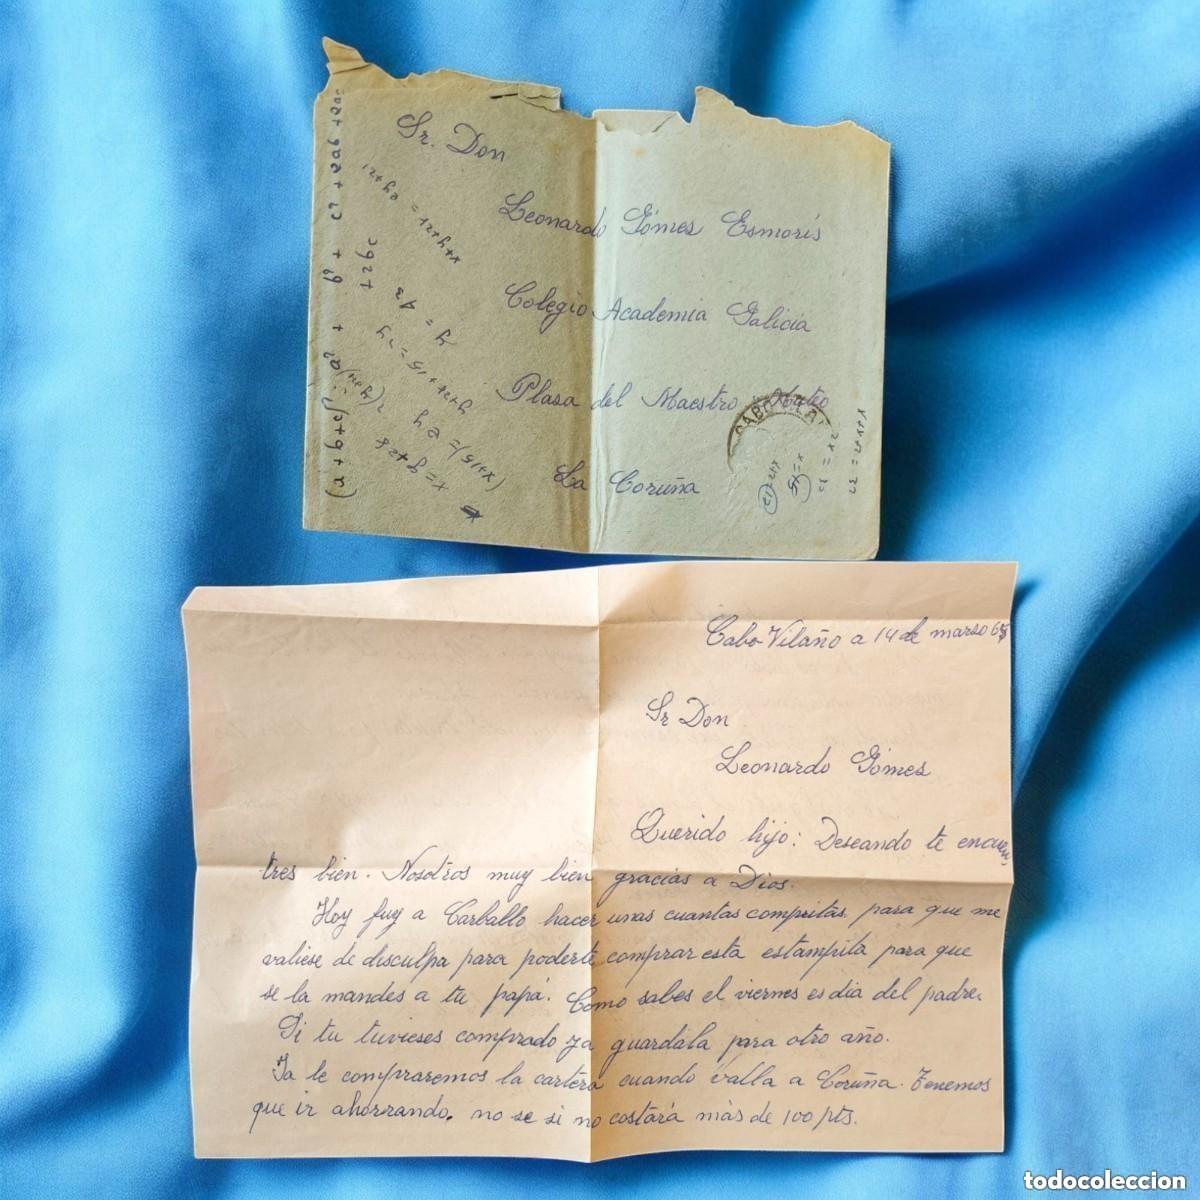 Sr. Don
Leonardo Gómes Esmorís
Colegio Academia Galicia
Plasa del Maestro Mateo
La Coruña
x+y+z1 = 2y+z1
y = 13
(x+15)= 2y
x=y+z8
Cabo Vilaño a 14 de marzo 65
Sr Don
Leonardo Gómes
Querido hijo: Deseando te encuen
tres bien. Nosotros muy bien gracias a Dios.
Hoy fuy a Carballo hacer unas cuantas compritas para que me
valiese de disculpa para poderte comprar esta estampita para que
se la mandes a tu papá. Como sabes el viernes es dia del padre.
Si tu tuvieses comprado ya guardala para otro año.
Ja le compraremos la cartera cuando valla a Coruña. Tenemos
que ir ahorrando. no se si no costará más de 100 pts.
todocoleccion